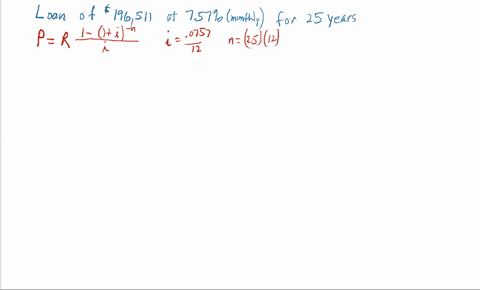 Loan of $196,511 at 7.57% (monthly) for 25 years
P = R \frac{1-(1+i)^{-n}}{i} i = \frac{.0757}{12} n = (25)(12)